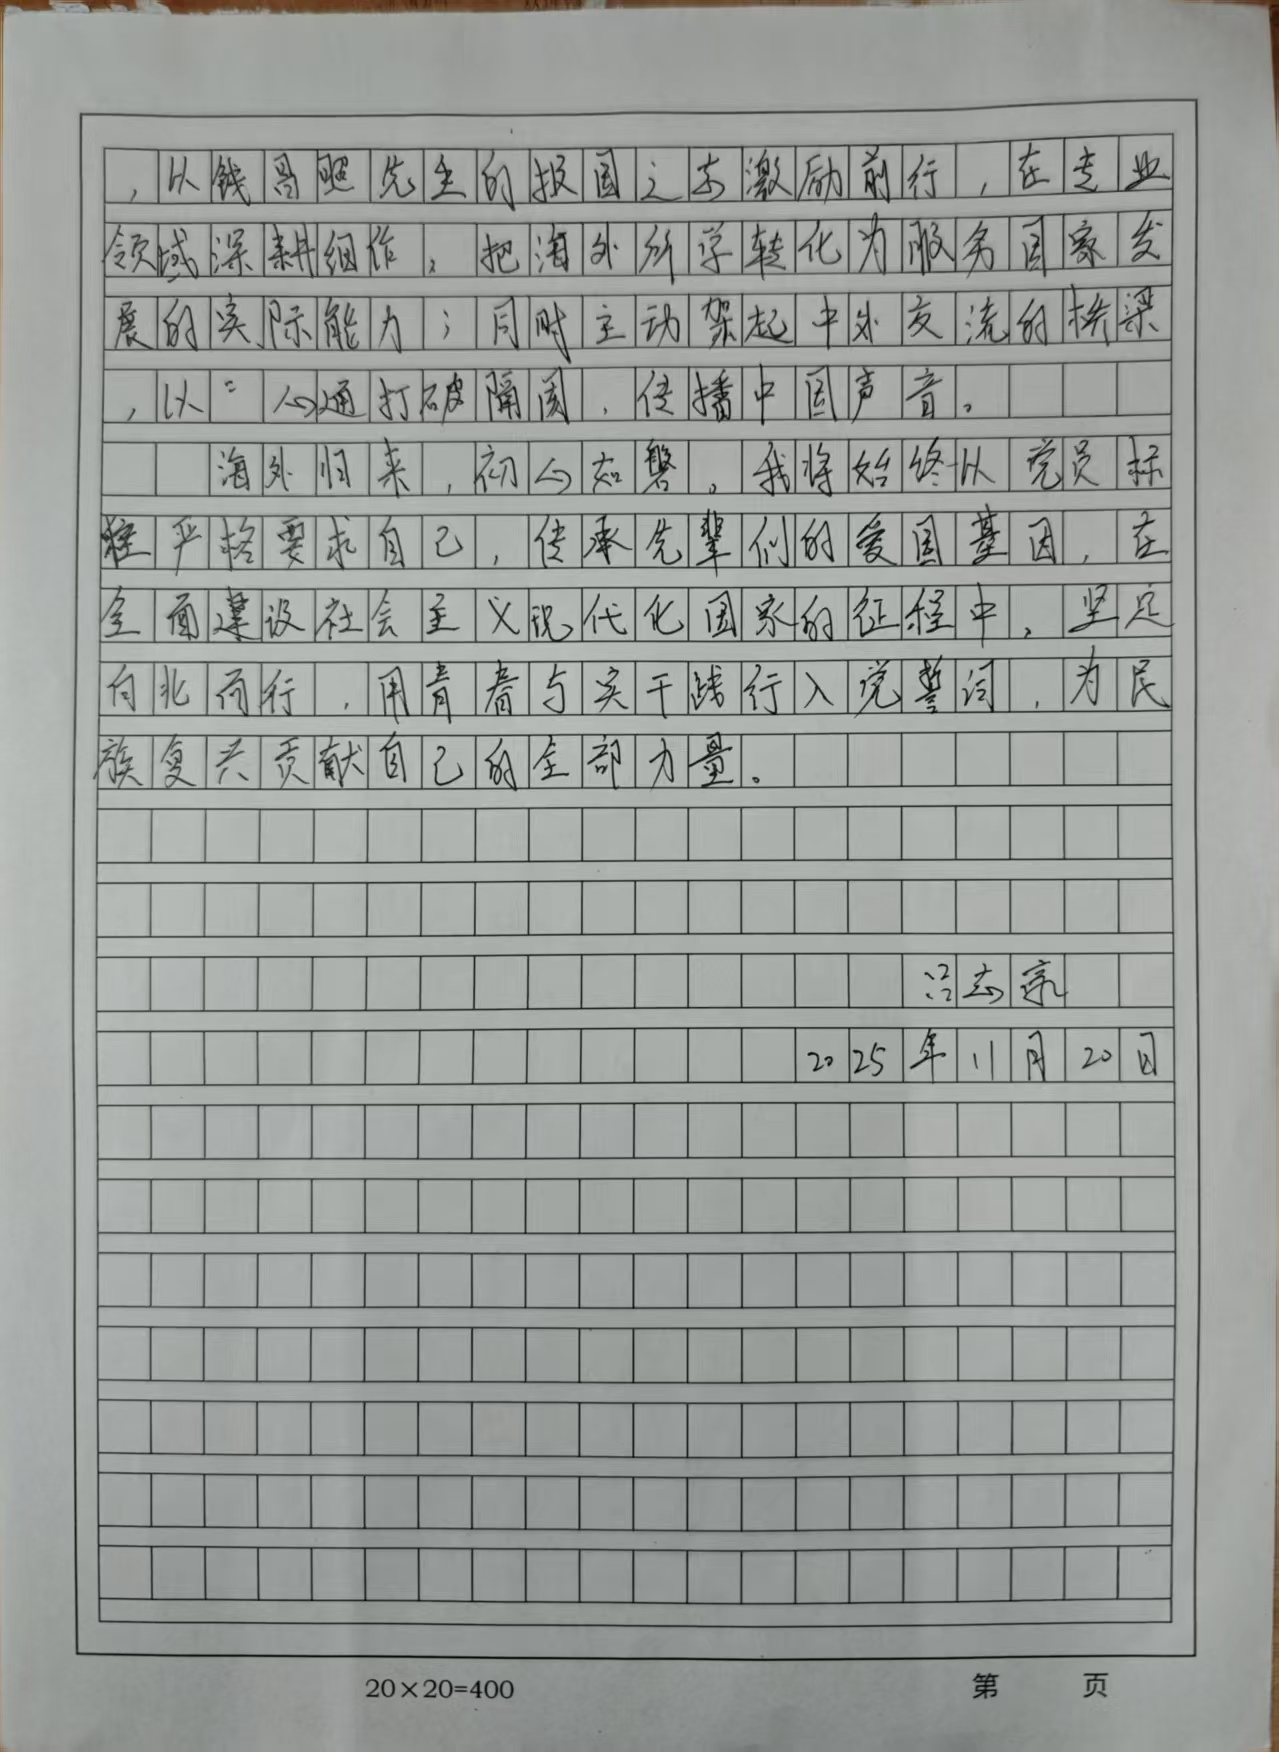 ，以钱昌照先生的报国之志激励前行，在专业
领域深耕细作，把海外所学转化为服务国家发
展的实际能力；同时主动架起中外交流的桥梁
，以 心通打破隔阂，传播中国声音。
海外归来，初心如磐。我将始终以党员标
准严格要求自己，传承先辈们的爱国基因，在
全面建设社会主义现代化国家的征程中，坚定
向北而行，用青春与实干践行入党誓词，为民
族复兴贡献自己的全部力量。
志
2025年11月20日
20×20=400
第 页